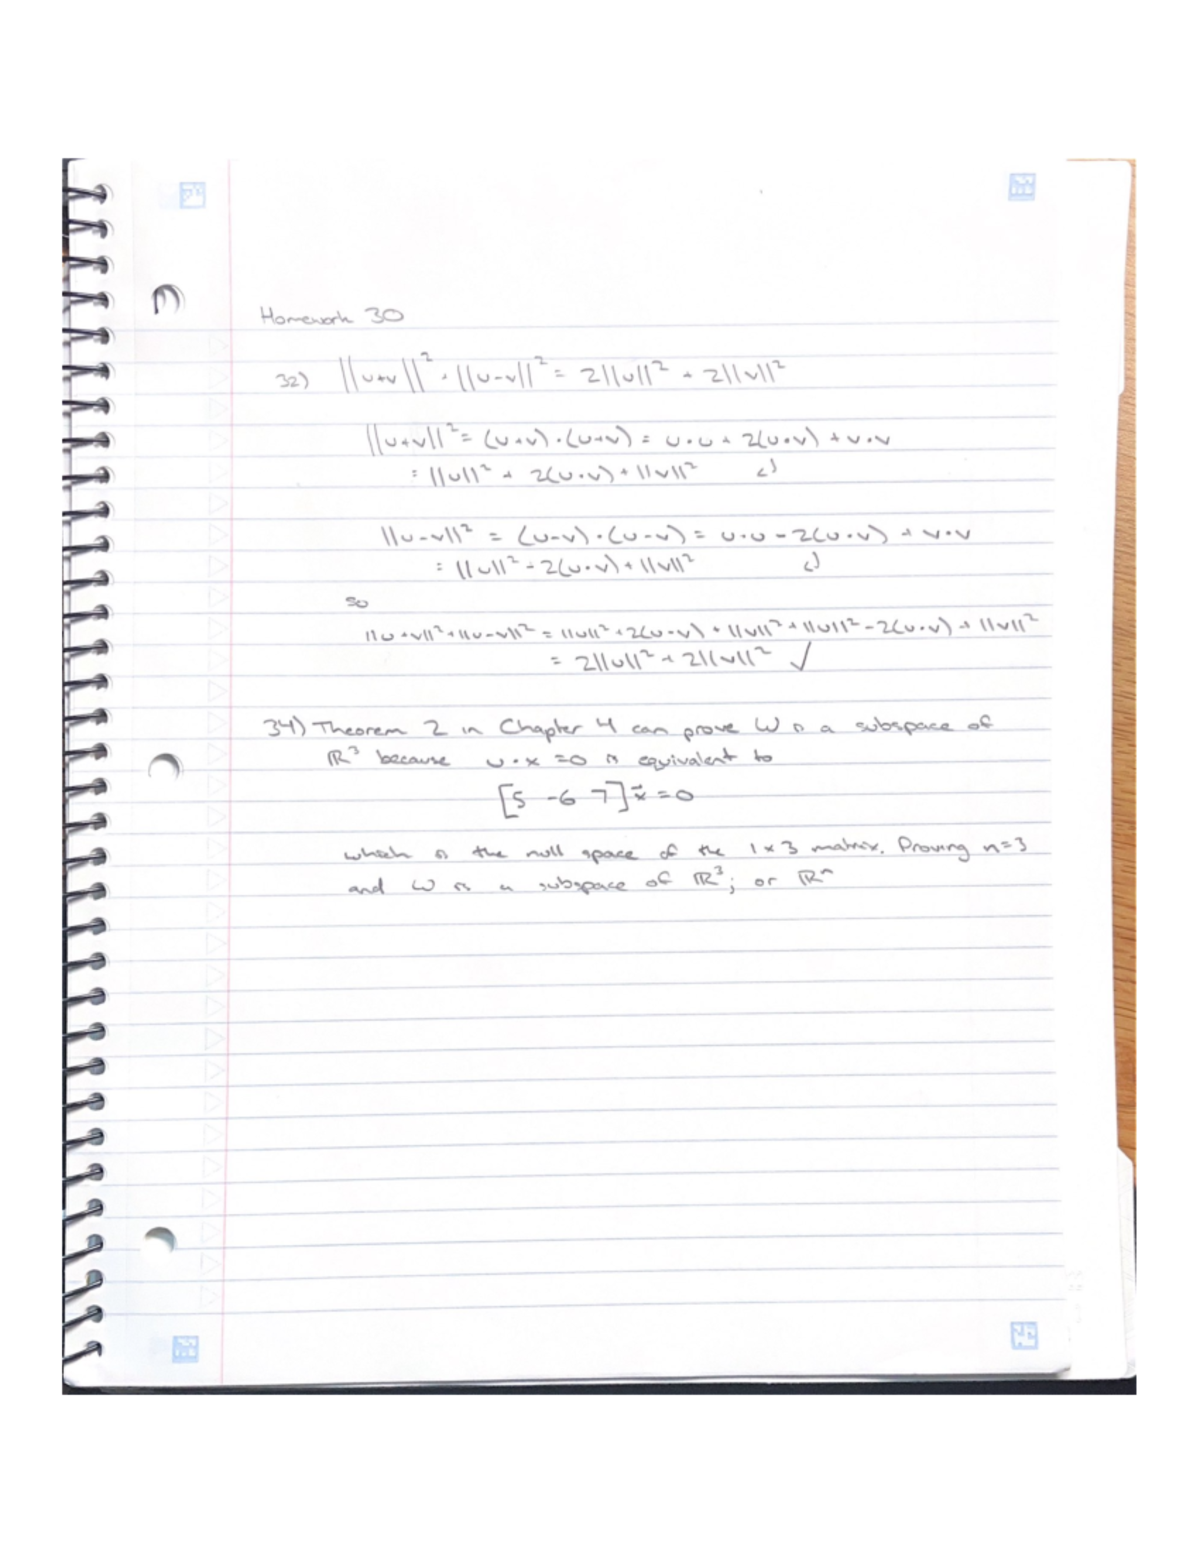 Homework 30
32) ||u+v||² + ||u-v||² = 2||u||² + 2||v||²
||u+v||² = (u+v)·(u+v) = u·u + 2(u·v) + v·v
= ||u||² + 2(u·v) + ||v||²
||u-v||² = (u-v)·(u-v) = u·u - 2(u·v) + v·v
= ||u||² - 2(u·v) + ||v||²
so
||u+v||² + ||u-v||² = ||u||² + 2(u·v) + ||v||² + ||u||² - 2(u·v) + ||v||²
= 2||u||² + 2||v||² ✓
34) Theorem 2 in Chapter 4 can prove W is a subspace of
ℝ³ because u·x = 0 is equivalent to
[5 -6 7]x⃗ = 0
which is the null space of the 1×3 matrix. Proving n=3
and W is a subspace of ℝ³; or ℝⁿ